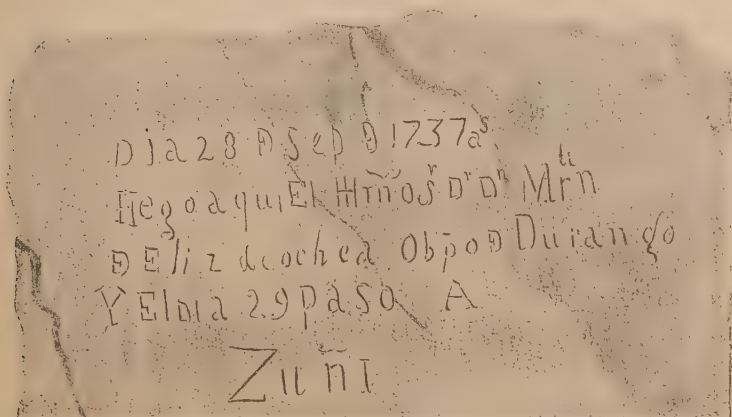 Dia 28 Ð Sep Ð 1737 aˢ
llego aqui El Illmͦ Sʳ Dʳ Dⁿ Mrⁿ
Ð Elizaecochea Obpo Ð Durango
Y El Dia 29 paso A
Zuñi